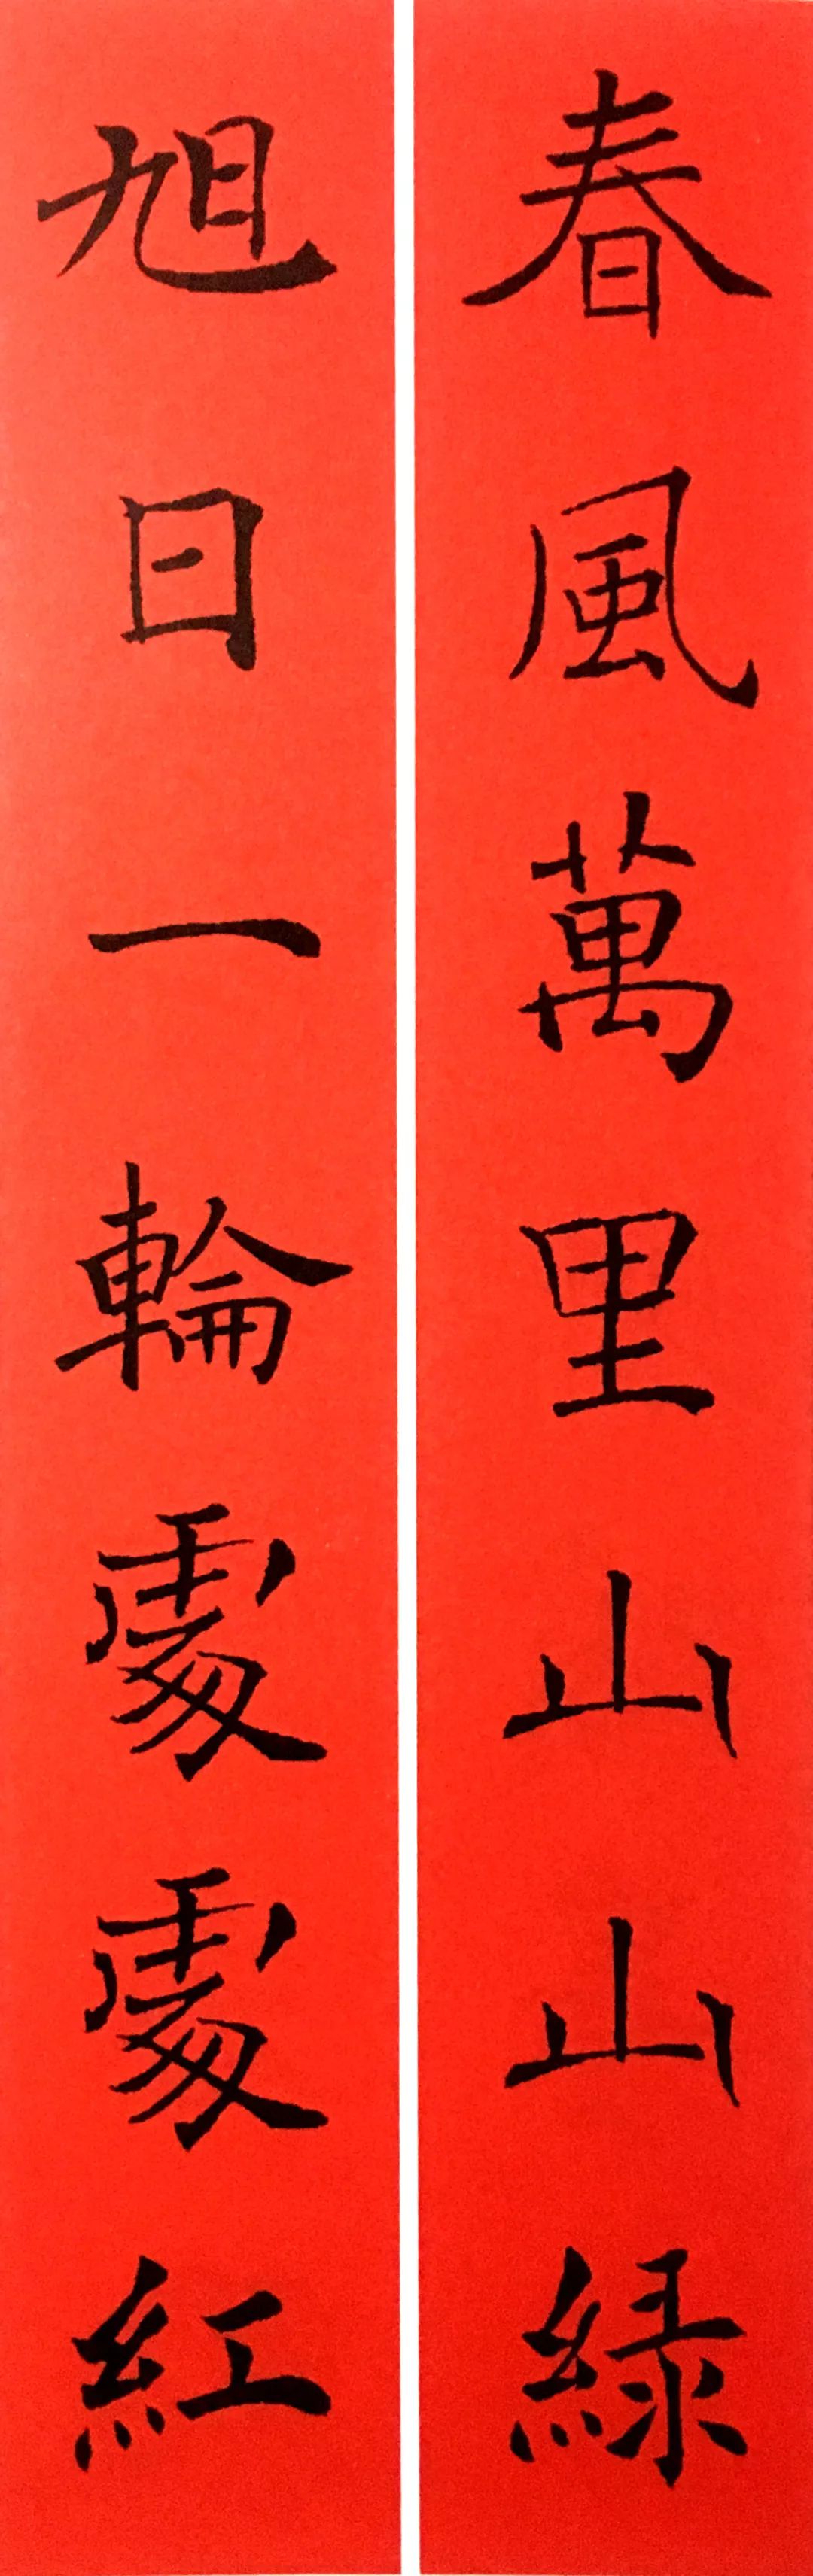 春風萬里山山綠
旭日一輪處處紅